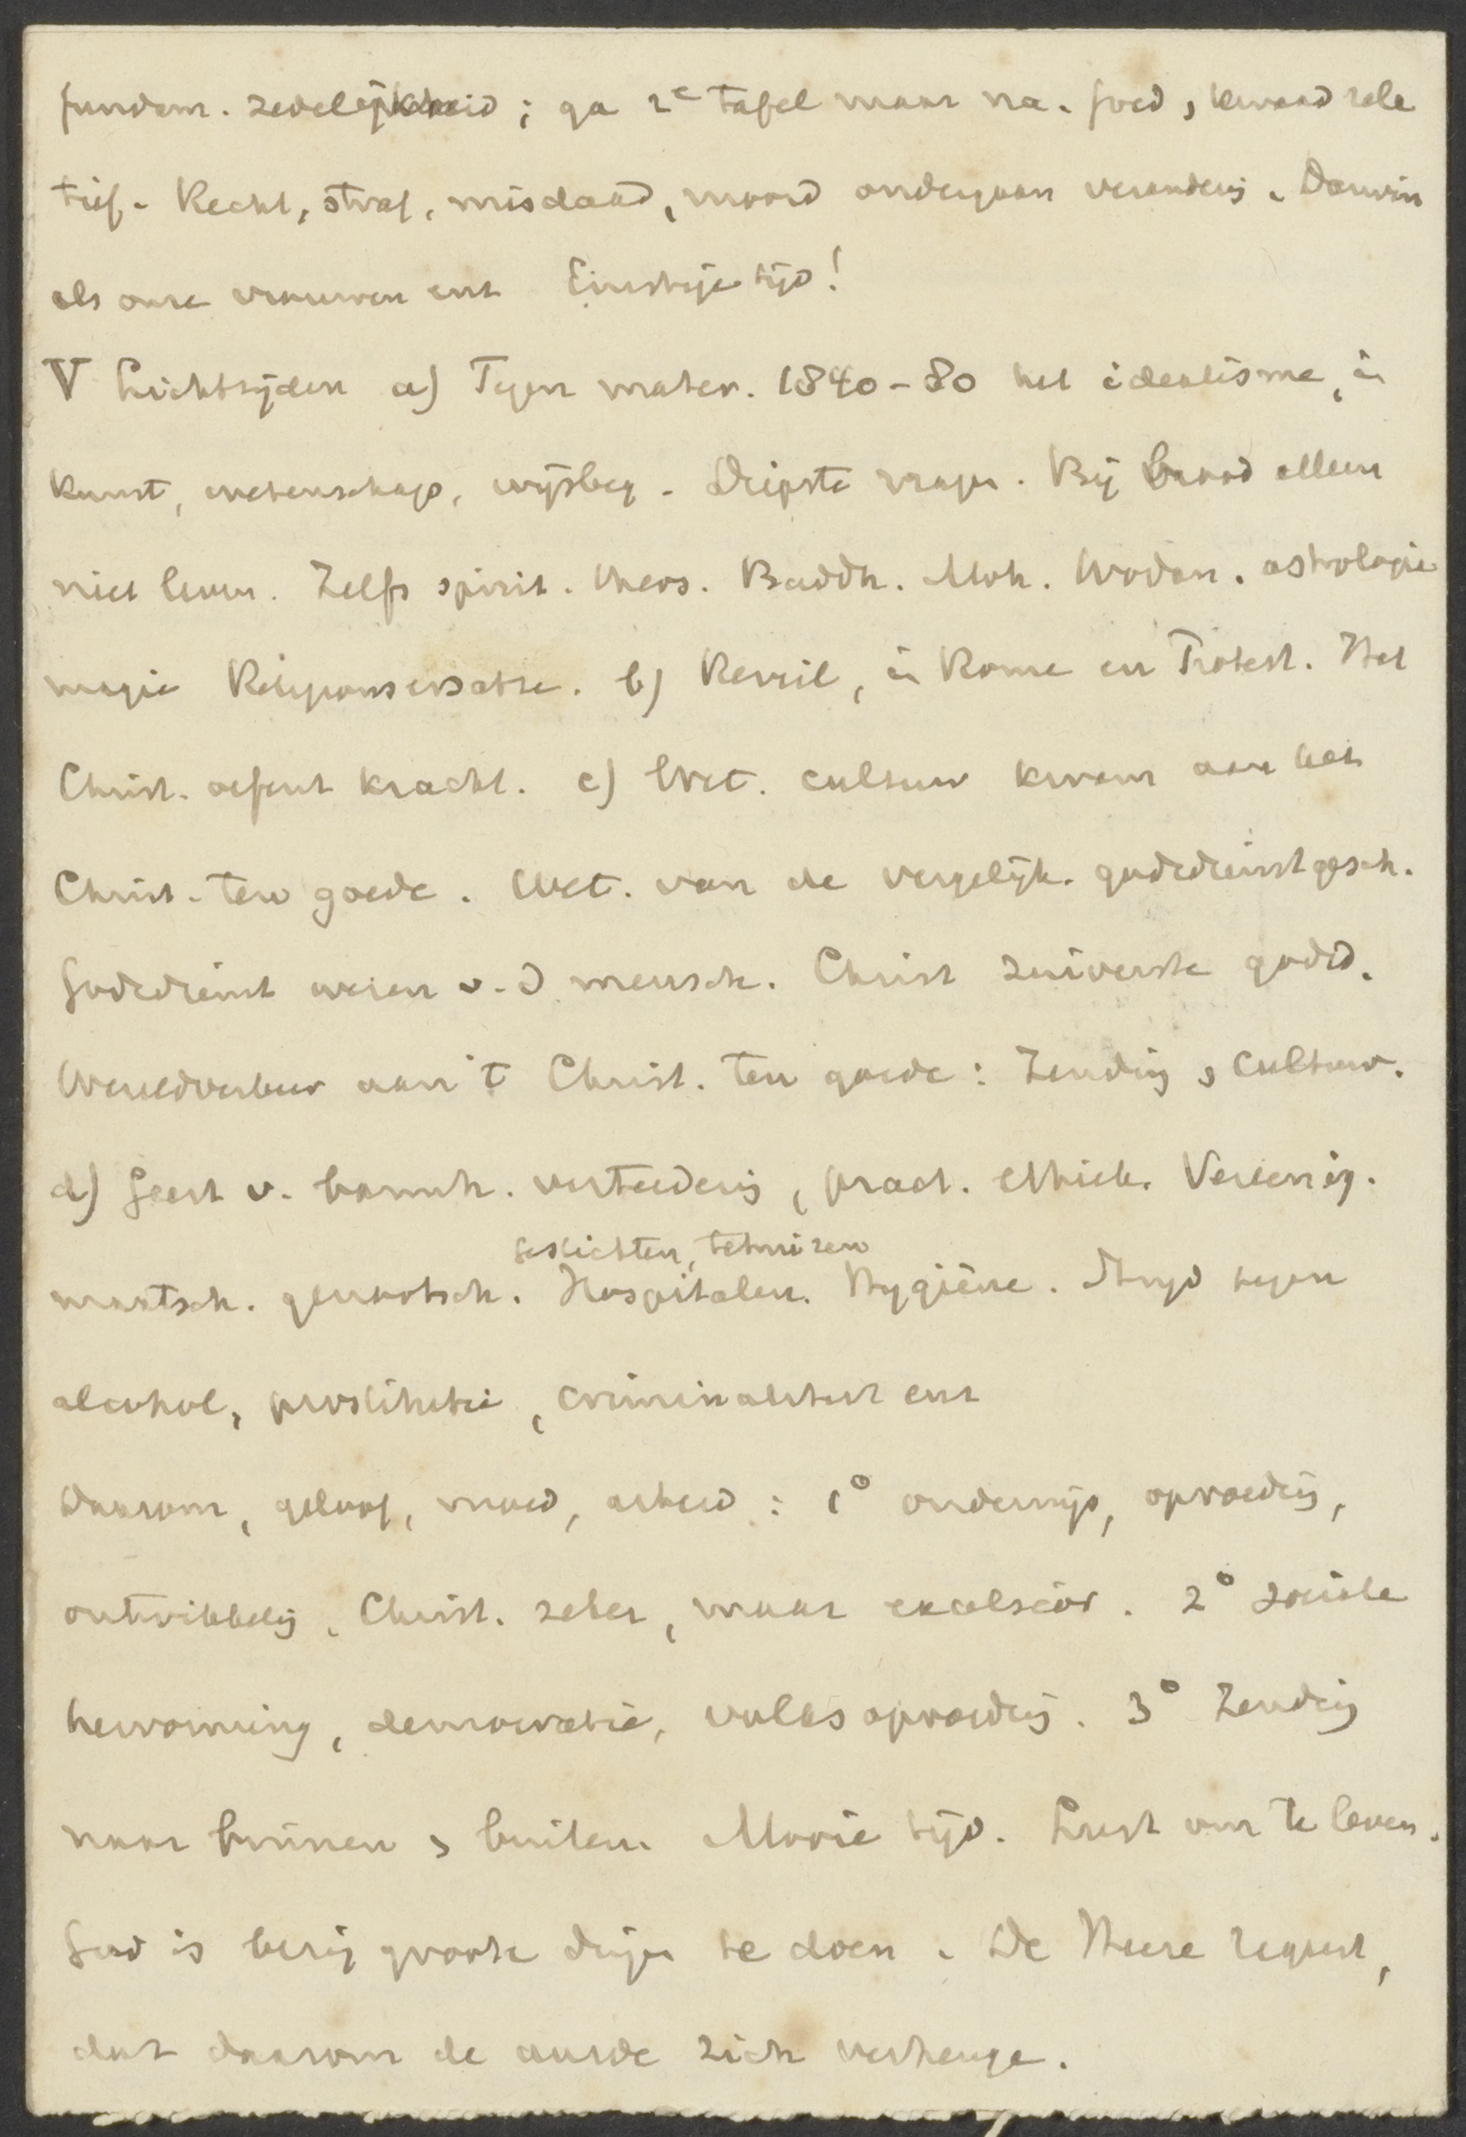 fundam. zedelijkheid; ga 2e tafel maar na. Goed, kwaad rela
tief. Recht, straf, misdaad, moord ondergaan verandering. Darwin
als onze vrouwen enz
V Lichtzijden a) Tegen mater. 1840-80 het idealisme, in
kunst, wetenschap, wijsbeg. Diepste vragen. Bij brood alleen
niet leven. Zelfs spirit. theos. Buddh. Moh. Wodan. astrologie
magie Religionsersatze. b) Reveil, in Rome en Protest. Het
Christ. oefent kracht. c) Wet. cultuur kwam aan het
Christ. ten goede. Wet. van de vergelijk. godsdienstgesch.
Godsdienst wezen v. d mensch. Christ zuiverste godsd.
Wereldverkeer aan 't Christ. ten goede: Zending, cultuur.
d) Geest v. barmh. verteedering, pract. ethiek. Vereenig.
Gestichten, tehuizen
maatsch. genootsch. Hospitalen. Hygiène. Strijd tegen
alcohol, prostitutie, criminaliteit enz
Daarom, geloof, moed, arbeid: 1° onderwijs, opvoeding,
ontwikkeling. Christ. zeker, maar excelsior. 2° sociale
hervorming, democratie, volksopvoeding. 3° Zending
naar binnen, buiten. Mooie tijd. Lust om te leven.
God is bezig groote dingen te doen. De Heere regeert,
dat daarom de aarde zich verheuge.